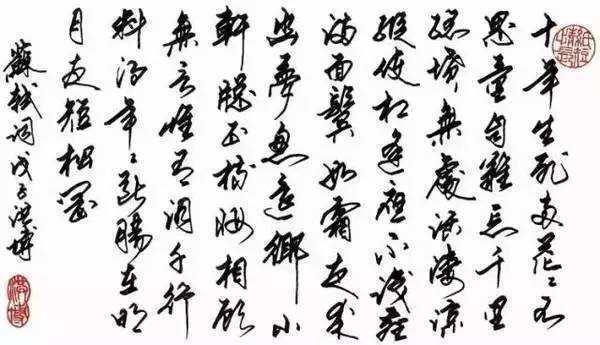 十年生死两茫々不
思量自難忘千里
孤墳無處話淒涼
縱使相逢應不識塵
滿面鬢如霜夜來
幽夢忽還鄉小
軒窗正梳妝相顧
無言惟有泪千行
料得年々斷腸在明
月夜短松岡
蘇軾詞戊子洪博
洪博